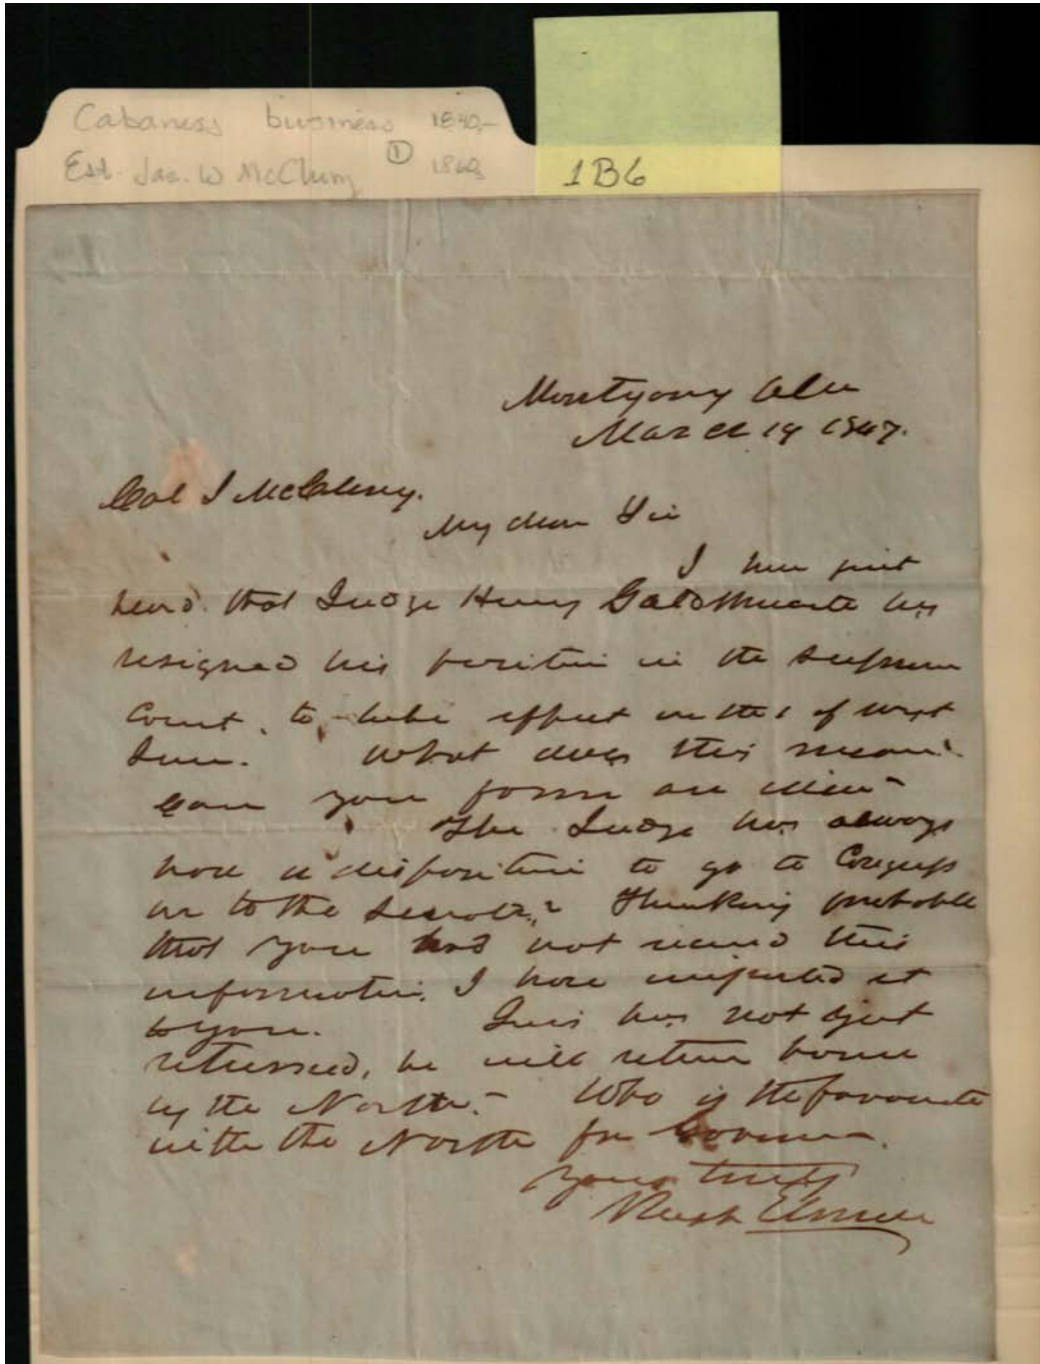 Cabaness business 1840,-
Est. Jas. W McClung ① 1860s
1B6
Montgomery Ala
March 19 1847.
Col J McClung.
My dear Sir
I have just
heard that Judge Henry Goldthwaite has
resigned his position in the Supreme
Court, to take effect on the 1 of next
June. What does this mean.
Can you form an idea-
The Judge has always
had a disposition to go to Congress
or to the Senate. Thinking probable
that you had not received this
information, I have imparted it
to you. has not yet
returned, he will return home
by the North.- Who is the favourite
with the North for Governor.
Yours truly
Rush Elmore